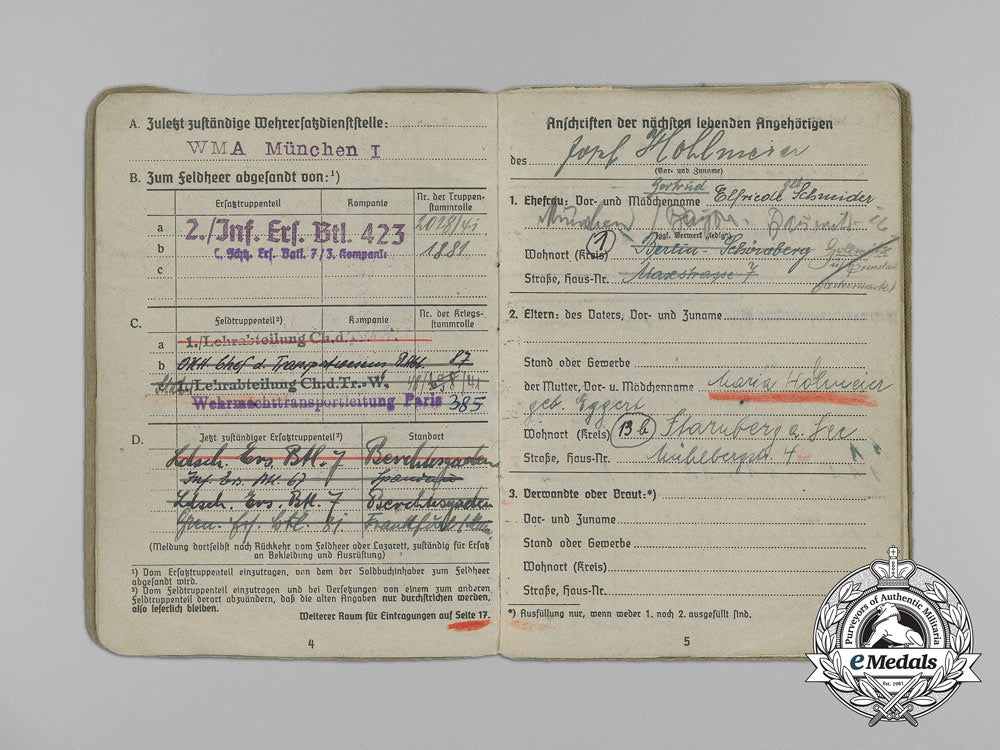 A. Zuletzt zuständige Wehrersatzdienststelle:
WMA München I
B. Zum Feldheer abgesandt von:¹)
Ersatztruppenteil Kompanie Nr. der Truppenstammrolle
a 2./Inf. Ers. Btl. 423 2028/41
b Ers. Batl. 7/3. Kompanie 1881
c
C. Feldtruppenteil²) Kompanie Nr. der Kriegsstammrolle
a 1./Lehrabteilung Ch.d.
b OKH Chef d. Transportwesens 87
1./Lehrabteilung Ch.d.Tr.-W.
Wehrmachttransportleitung Paris 385
D. Jetzt zuständiger Ersatztruppenteil²) Standort
Ldsch. Ers. Btl. 7 Berchtesgaden
Inf. Ers. Btl. 67 Spandau
Ldsch. Ers. Btl. 7 Berchtesgaden
Gren. Ers. Btl. 81 Frankfurt
(Meldung dortselbst nach Rückkehr vom Feldheer oder Lazarett, zuständig für Ersatz
an Bekleidung und Ausrüstung)
¹) Vom Ersatztruppenteil einzutragen, von dem der Soldbuchinhaber zum Feldheer
abgesandt wird.
²) Vom Feldtruppenteil einzutragen und bei Versetzungen von einem zum anderen
Feldtruppenteil derart abzuändern, daß die alten Angaben nur durchstrichen werden,
also leserlich bleiben.
Weiterer Raum für Eintragungen auf Seite 17.
4
Anschriften der nächsten lebenden Angehörigen
des Josef Hollmeier
(Vor- und Zuname)
Gertrud geb.
1. Ehefrau: Vor- und Mädchenname Elfriede Schneider
München
(ggf. Vermerk „ledig")
Wohnort (Kreis) 1 Berlin Schöneberg
Straße, Haus-Nr. Maxstrasse 7
2. Eltern: des Vaters, Vor- und Zuname
Stand oder Gewerbe
der Mutter, Vor- u. Mädchenname Maria Holmeier
geb. Eggerl
Wohnort (Kreis) 13 b Starnberg a. See
Straße, Haus-Nr. Mühlbergstr. 4
3. Verwandte oder Braut:*)
Vor- und Zuname
Stand oder Gewerbe
Wohnort (Kreis)
Straße, Haus-Nr.
*) Ausfüllung nur, wenn weder 1. noch 2. ausgefüllt sind.
5
Purveyors of Authentic Militaria
eMedals
Est. 1981